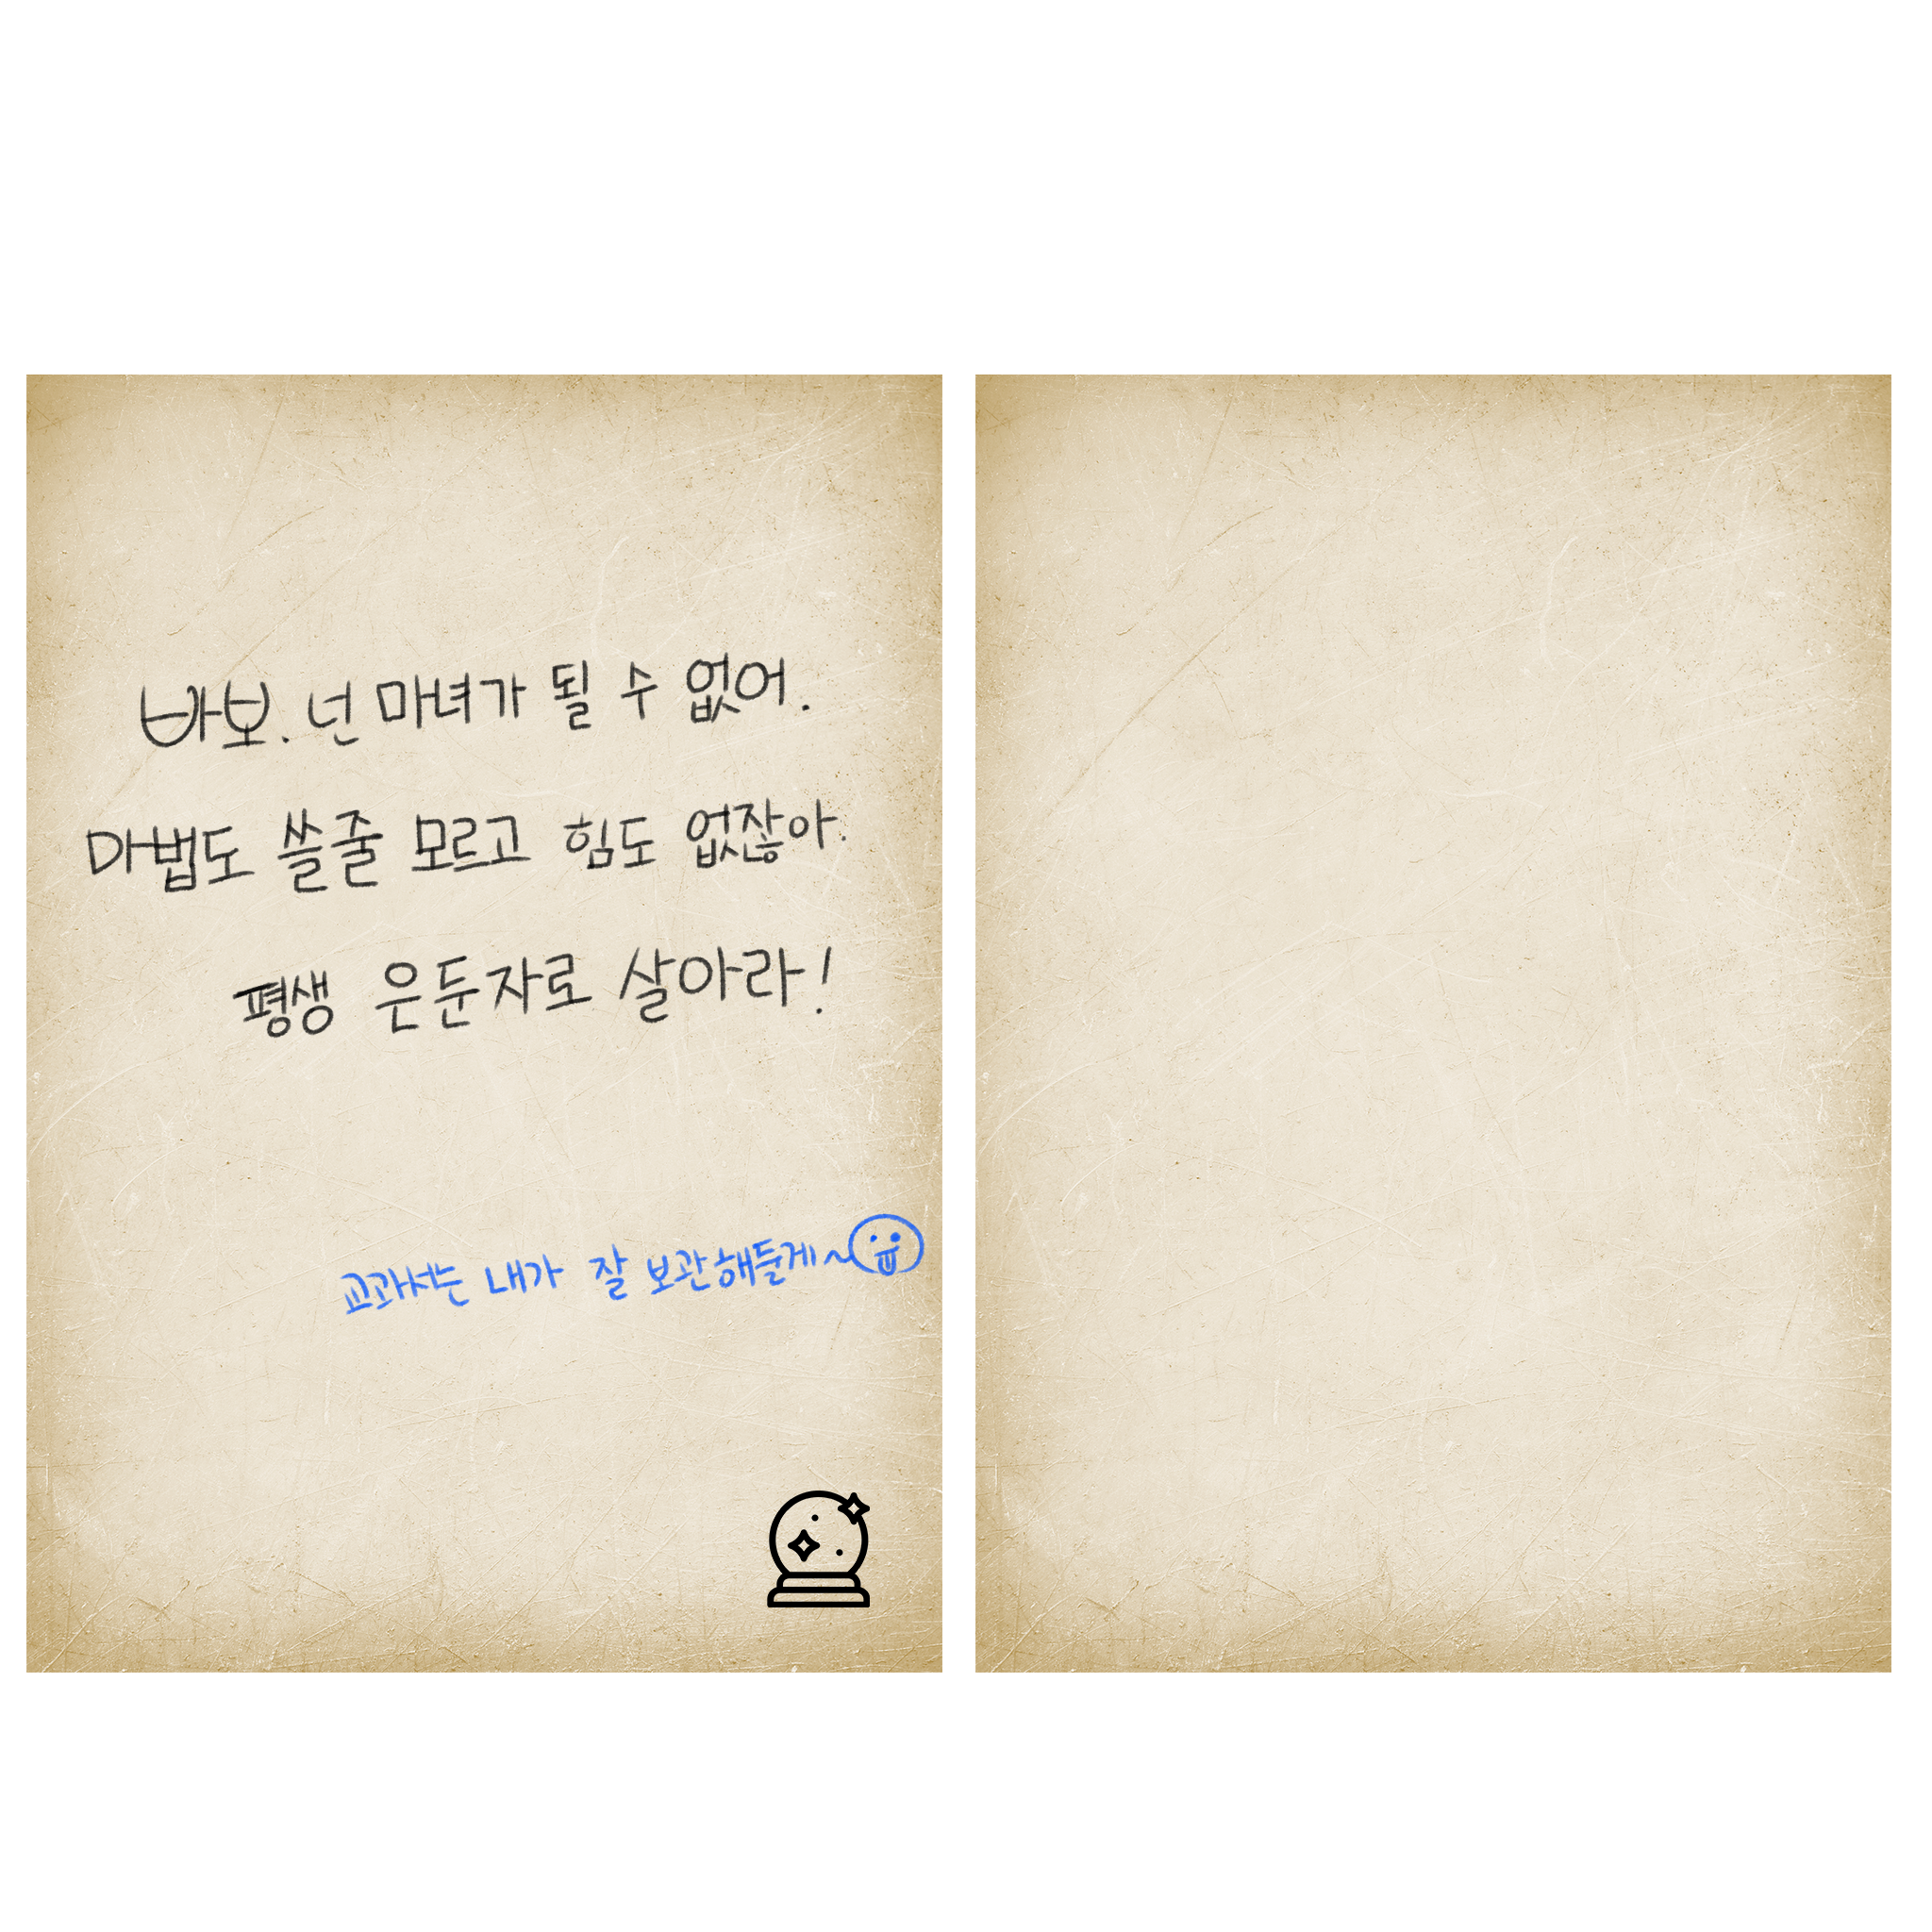 바보. 넌 마녀가 될 수 없어.
마법도 쓸줄 모르고 힘도 없잖아.
평생 은둔자로 살아라!
교과서는 내가 잘 보관해둘게~